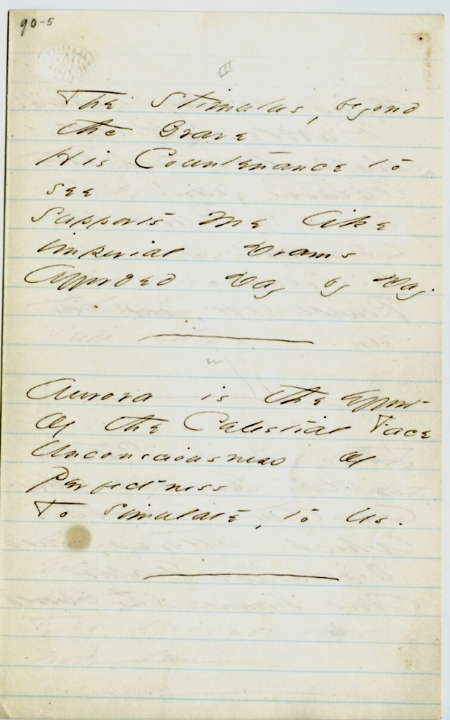 90-5
III
The Stimulus, beyond
the Grave
His Countenance to
see
Supports me like
imperial Drams
Afforded Day by Day.
Aurora is the Effort
Of the Celestial Face
Unconsciousness of
Perfectness
To Simulate, to Us.